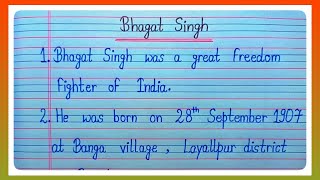 Bhagat Singh
1. Bhagat Singh was a great freedom
fighter of India.
2. He was born on 28th September 1907
at Banga village, Layallpur district